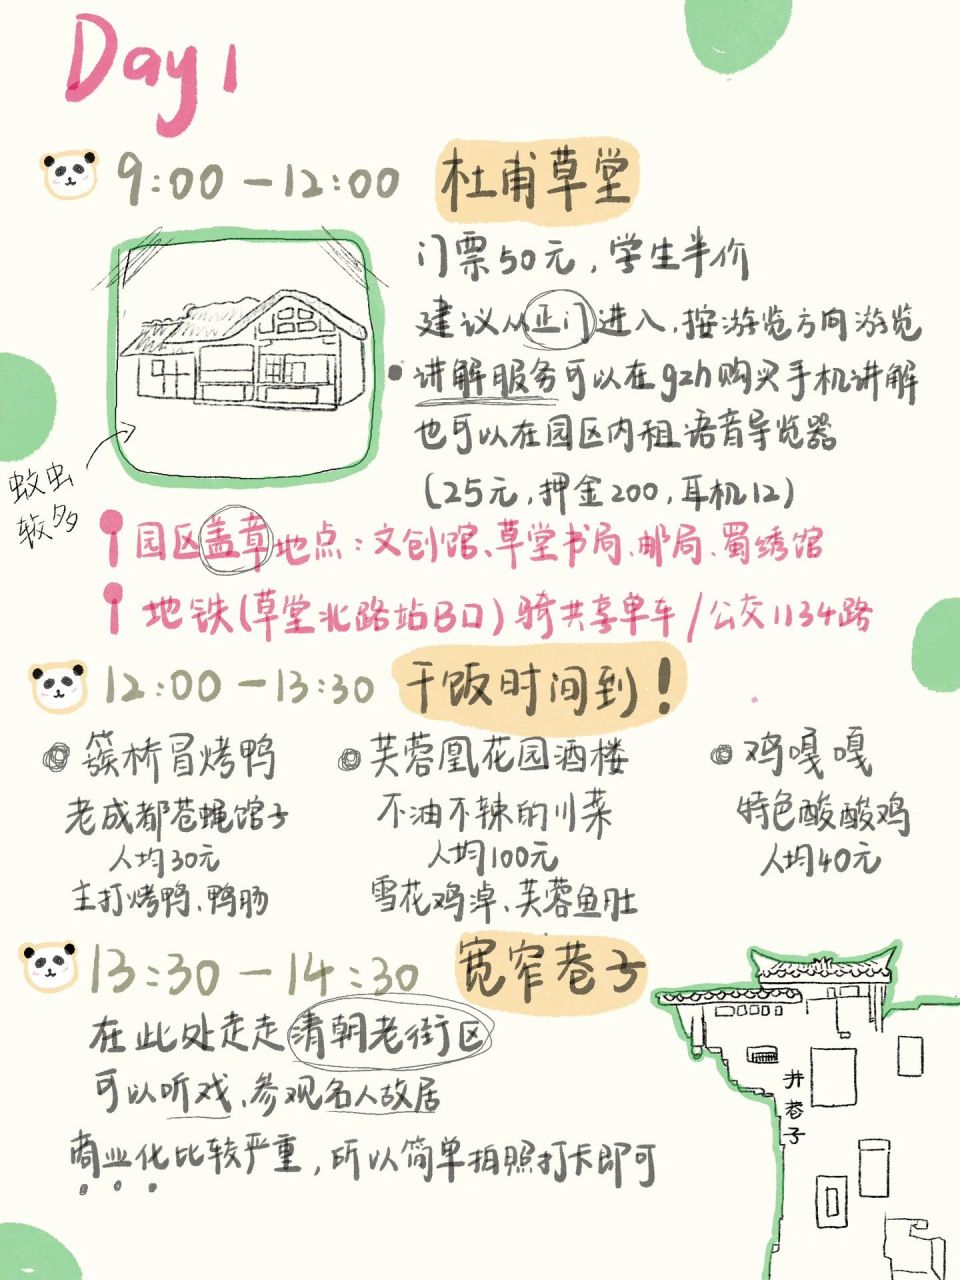 Day 1
9:00－12:00 杜甫草堂
门票50元，学生半价
建议从正门进入，按游览方向游览
讲解服务可以在gzh购买手机讲解
也可以在园区内租语音导览器
(25元，押金200，耳机12)
蚊虫
较多
园区盖章地点：文创馆、草堂书局、邮局、蜀绣馆
地铁(草堂北路站B口)骑共享单车/公交1134路
12:00－13:30 干饭时间到！
簇桥冒烤鸭
老成都苍蝇馆子
人均30元
主打烤鸭、鸭肠
芙蓉凰花园酒楼
不油不辣的川菜
人均100元
雪花鸡淖、芙蓉鱼肚
鸡嘎嘎
特色酸酸鸡
人均40元
13:30－14:30 宽窄巷子
在此处走走清朝老街区
可以听戏、参观名人故居
商业化比较严重，所以简单拍照打卡即可
井巷子